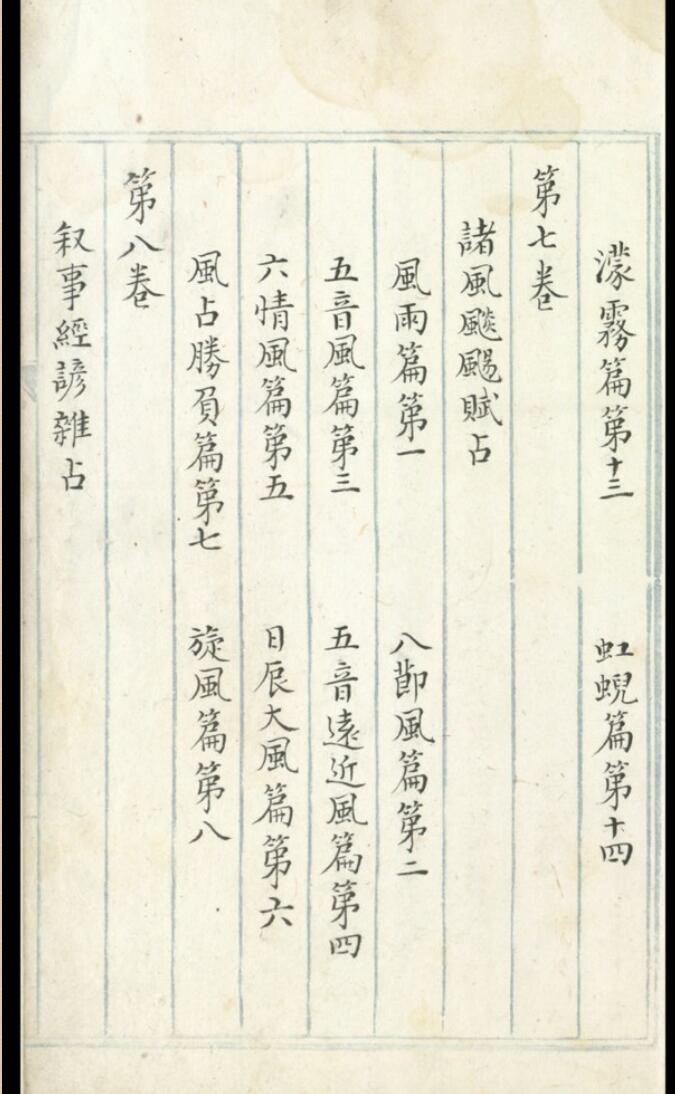 濛霧篇第十三　虹蜺篇第十四
第七卷
諸風飈颺賦占
風雨篇第一　八節風篇第二
五音風篇第三　五音遠近風篇第四
六情風篇第五　日辰大風篇第六
風占勝負篇第七　旋風篇第八
第八卷
叙事經諺雜占